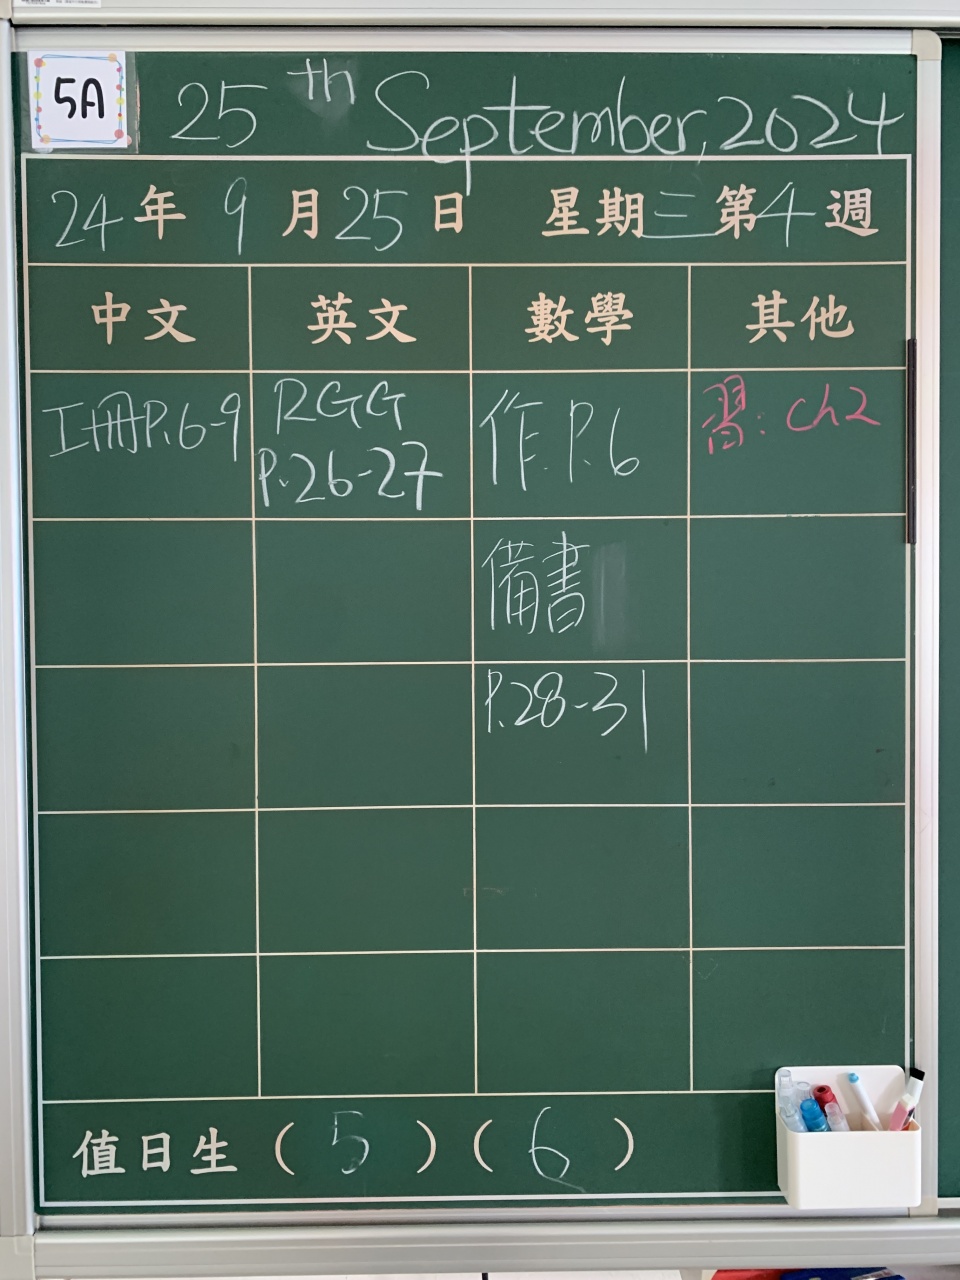 5A
25th September, 2024
24年 9月25日 星期三第4週
中文 英文 數學 其他
工冊P.6-9
RGG
P.26-27
作.P.6
習: Ch2
備書
P.28-31
值日生 (5)(6)